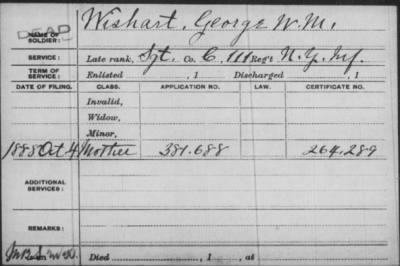 DEAD
NAME OF SOLDIER: Wishart, George W. M.
SERVICE: Late rank, Sgt. Co. C, 111 Reg't N.Y. Inf.
TERM OF SERVICE: Enlisted , 1 Discharged , 1
DATE OF FILING. CLASS. APPLICATION NO. LAW. CERTIFICATE NO.
Invalid,
Widow,
Minor,
1888 Oct 4 Mother 381.688 264.289
ADDITIONAL SERVICES:
REMARKS:
Died , 1 , at